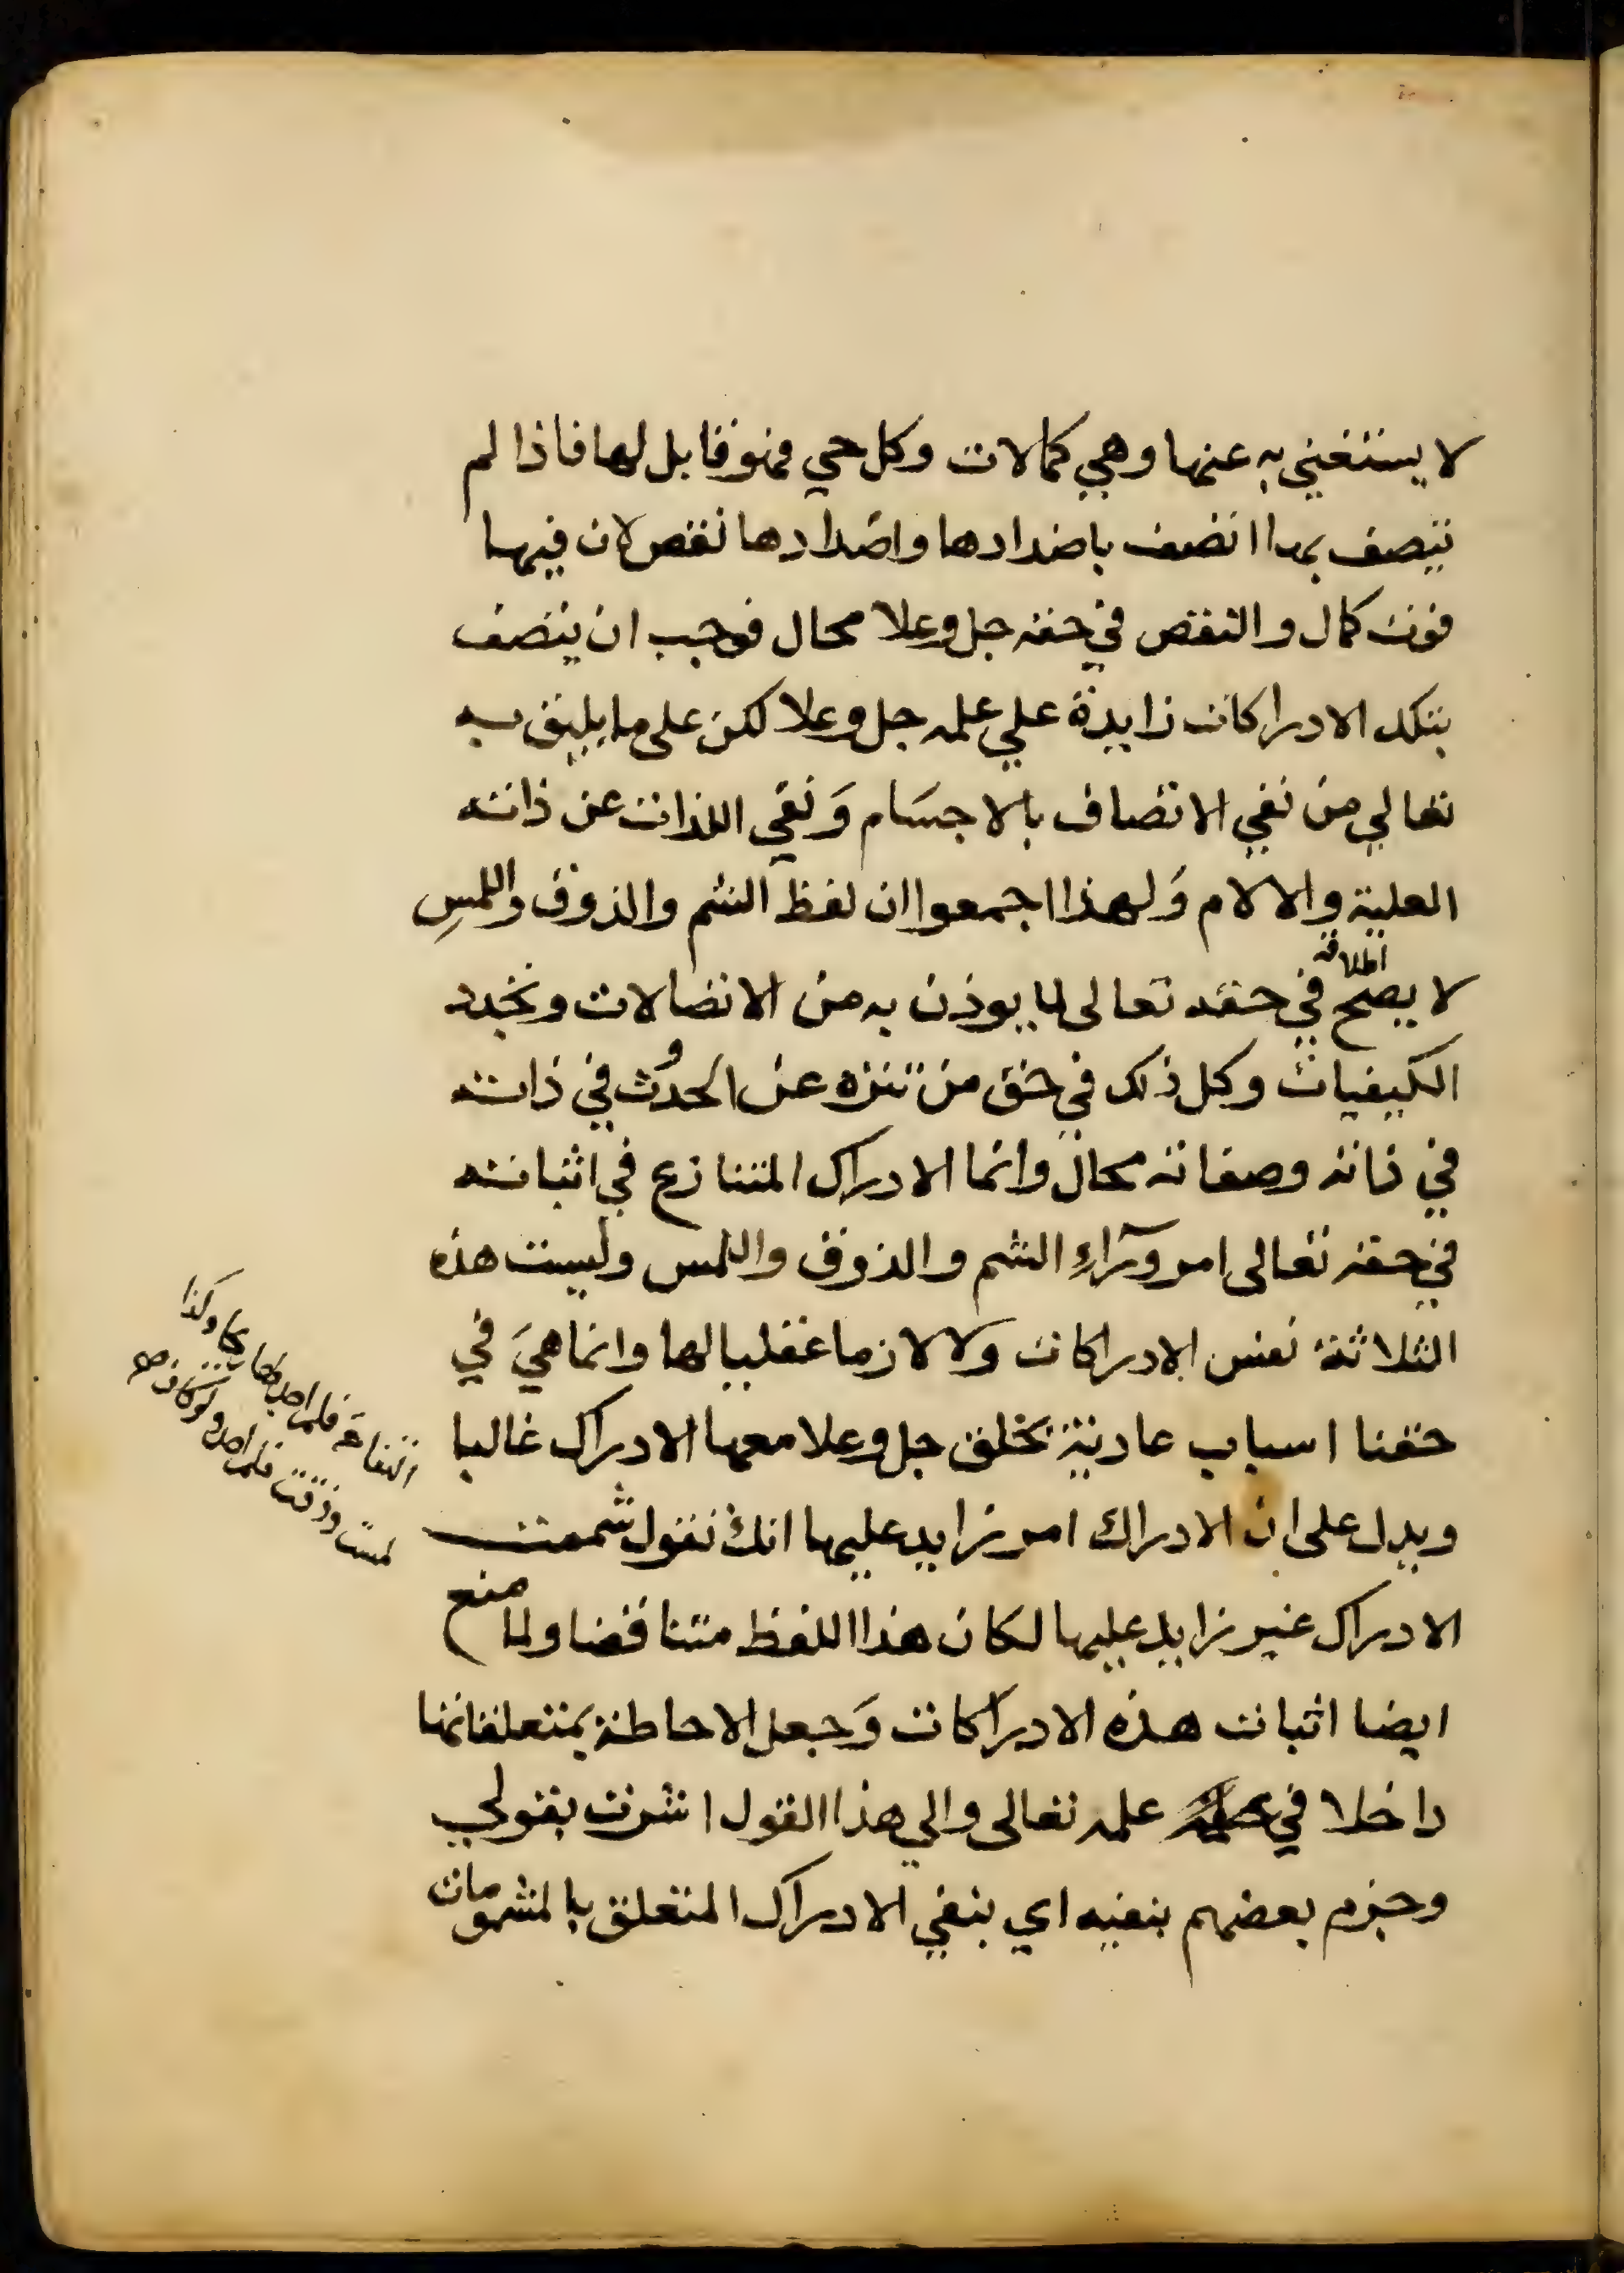 لا يستغني به عنها وهي كمالات وكل حي فهو قابل لها فاذا لم
يتصف بها اتصف باضدادها واضدادها نقص لان فيها
فوت كمال والنقص في حقه جل وعلا محال فوجب ان يتصف
بتلك الادراكات زايدة علي علمه جل وعلا لكن على ما يليق به
تعالي من نفي الاتصاف بالاجسَام وَنفي اللذات عن ذاته
العلية والالام وَلهذا اجمعوا ان لفظ الشم والذوق واللمسِ
لا يصح اطلاقه في حقه تعالى لما يوذن به من الاتصالات وتجدد
الكيفيات وكل ذلك في حق من تنزه عن الحدوث في ذاته
في ذاته وصفاته محال وانما الادراك المتنازع في اثباته
في حقه تعالى امر ورَآءِ الشم والذوق واللمس وليست هذه
الثلاثة نفس الادراكات ولا لازما عقليا لها وانما هيَ في
حقنا اسباب عادية يخلق جل وعلا معها الادراك غالبا
ويدل على ان الادراك امر زايد عليها انك تقول شممت
التفاحة فلم اجد لها ريحا وكذا
لمست وذقت فلم اجد ولو كان
الادراك غير زايد عليها لكان هذا اللفظ متناقضا ولما منع
ايضا اثبات هذه الادراكات وَجعل الاحاطة بمتعلقاتها
داخلا في علمه تعالى والي هذا القول اشرت بقولي
وجزم بعضهم بنفيه اي بنفي الادراك المتعلق بالمشمومات